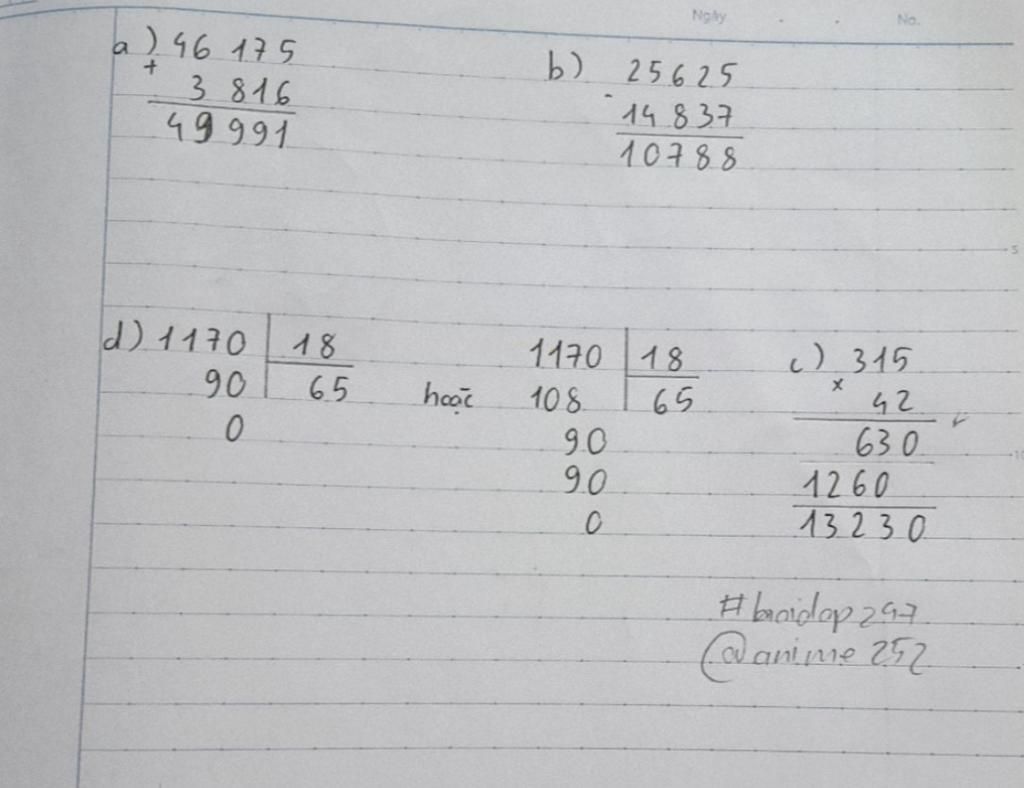 Ngày . . No.
a) 46 175
+
3 816
49 991
b) 25625
-
14 837
10788
d) 1170 18
90 65
0
hoặc
1170 18
108 65
90
90
0
c) 315
x
42
630
1260
13230
5
10
@anime 252